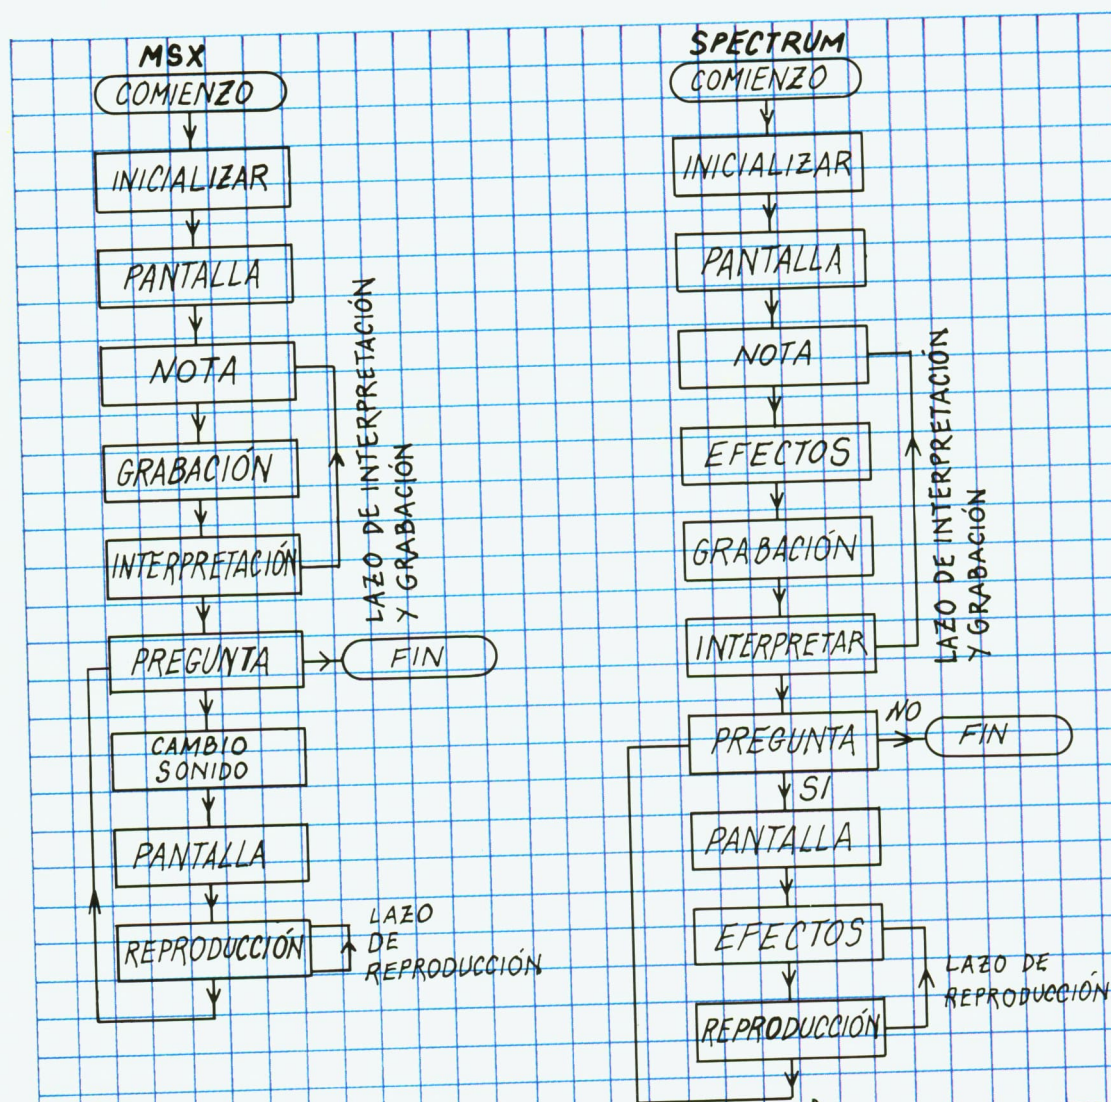 MSX
COMIENZO
INICIALIZAR
PANTALLA
NOTA
GRABACIÓN
INTERPRETACIÓN
LAZO DE INTERPRETACIÓN
Y GRABACIÓN
PREGUNTA
FIN
CAMBIO
SONIDO
PANTALLA
REPRODUCCIÓN
LAZO
DE
REPRODUCCIÓN
SPECTRUM
COMIENZO
INICIALIZAR
PANTALLA
NOTA
EFECTOS
GRABACIÓN
INTERPRETAR
LAZO DE INTERPRETACIÓN
Y GRABACIÓN
PREGUNTA
NO
FIN
SI
PANTALLA
EFECTOS
REPRODUCCIÓN
LAZO DE
REPRODUCCIÓN